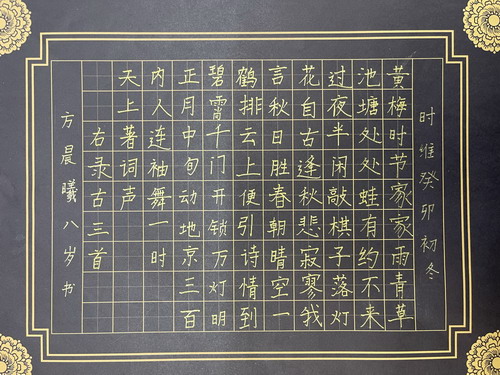 时维癸卯初冬
黄梅时节家家雨青草
池塘处处蛙有约不来
过夜半闲敲棋子落灯
花自古逢秋悲寂寥我
言秋日胜春朝晴空一
鹤排云上便引诗情到
碧霄千门开锁万灯明
正月中旬动地京三百
内人连袖舞一时
天上著词声
右录古三首
方晨曦八岁书